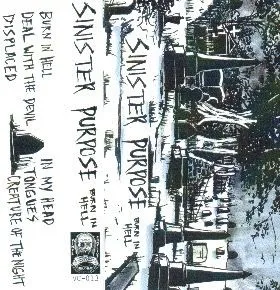 SINISTER PURPOSE
BURN IN
HELL
SINISTER PURPOSE
BURN IN
HELL
BURN IN HELL
DEAL WITH THE DEVIL
DISPLACED
IN MY HEAD
IN TONGUES
CREATURE OF THE NIGHT